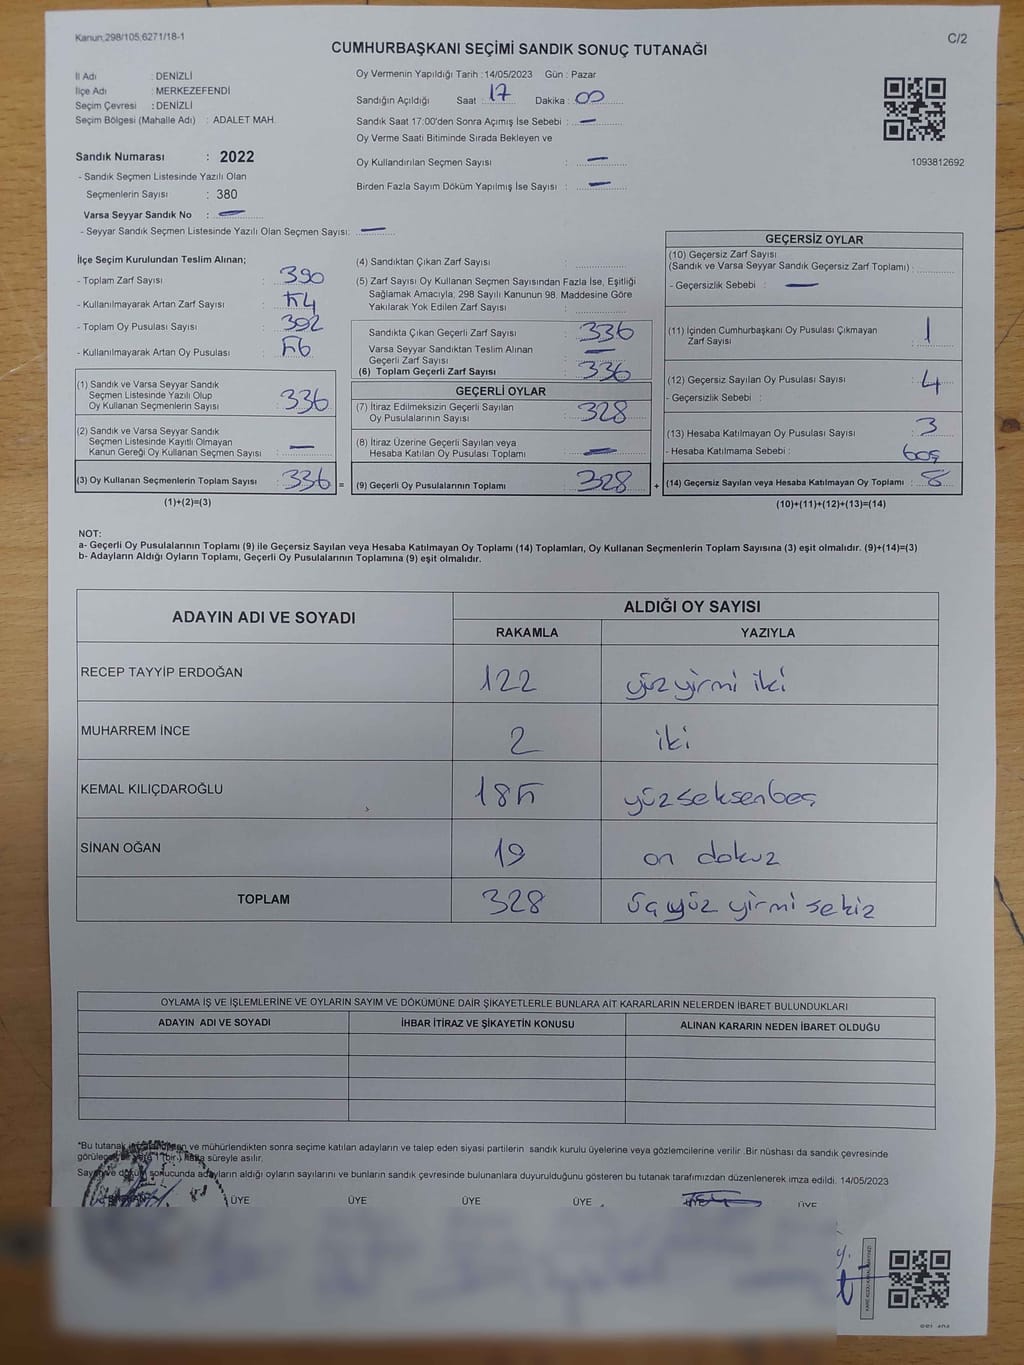 Kanun,298/105,6271/18-1
C/2
CUMHURBAŞKANI SEÇİMİ SANDIK SONUÇ TUTANAĞI
İl Adı : DENİZLİ
İlçe Adı : MERKEZEFENDİ
Seçim Çevresi : DENİZLİ
Seçim Bölgesi (Mahalle Adı) : ADALET MAH.
Sandık Numarası : 2022
- Sandık Seçmen Listesinde Yazılı Olan
Seçmenlerin Sayısı : 380
Varsa Seyyar Sandık No : —
- Seyyar Sandık Seçmen Listesinde Yazılı Olan Seçmen Sayısı: —
Oy Vermenin Yapıldığı Tarih : 14/05/2023 Gün : Pazar
Sandığın Açıldığı Saat : 17 Dakika : 00
Sandık Saat 17:00'den Sonra Açımış İse Sebebi : —
Oy Verme Saati Bitiminde Sırada Bekleyen ve
Oy Kullandırılan Seçmen Sayısı : —
Birden Fazla Sayım Döküm Yapılmış İse Sayısı : —
1093812692
İlçe Seçim Kurulundan Teslim Alınan;
- Toplam Zarf Sayısı : 390
- Kullanılmayarak Artan Zarf Sayısı : 54
- Toplam Oy Pusulası Sayısı : 392
- Kullanılmayarak Artan Oy Pusulası : 56
(1) Sandık ve Varsa Seyyar Sandık
Seçmen Listesinde Yazılı Olup
Oy Kullanan Seçmenlerin Sayısı : 336
(2) Sandık ve Varsa Seyyar Sandık
Seçmen Listesinde Kayıtlı Olmayan
Kanun Gereği Oy Kullanan Seçmen Sayısı : —
(3) Oy Kullanan Seçmenlerin Toplam Sayısı : 336 =
(1)+(2)=(3)
(4) Sandıktan Çıkan Zarf Sayısı :
(5) Zarf Sayısı Oy Kullanan Seçmen Sayısından Fazla İse, Eşitliği
Sağlamak Amacıyla; 298 Sayılı Kanunun 98. Maddesine Göre
Yakılarak Yok Edilen Zarf Sayısı :
Sandıkta Çıkan Geçerli Zarf Sayısı : 336
Varsa Seyyar Sandıktan Teslim Alınan
Geçerli Zarf Sayısı : —
(6) Toplam Geçerli Zarf Sayısı : 336
GEÇERLİ OYLAR
(7) İtiraz Edilmeksizin Geçerli Sayılan
Oy Pusulalarının Sayısı : 328
(8) İtiraz Üzerine Geçerli Sayılan veya
Hesaba Katılan Oy Pusulası Toplamı : —
(9) Geçerli Oy Pusulalarının Toplamı : 328 +
GEÇERSİZ OYLAR
(10) Geçersiz Zarf Sayısı
(Sandık ve Varsa Seyyar Sandık Geçersiz Zarf Toplamı) :
- Geçersizlik Sebebi : —
(11) İçinden Cumhurbaşkanı Oy Pusulası Çıkmayan
Zarf Sayısı : 1
(12) Geçersiz Sayılan Oy Pusulası Sayısı : 4
- Geçersizlik Sebebi :
(13) Hesaba Katılmayan Oy Pusulası Sayısı : 3
- Hesaba Katılmama Sebebi : boş
(14) Geçersiz Sayılan veya Hesaba Katılmayan Oy Toplamı : 8
(10)+(11)+(12)+(13)=(14)
NOT:
a- Geçerli Oy Pusulalarının Toplamı (9) ile Geçersiz Sayılan veya Hesaba Katılmayan Oy Toplamı (14) Toplamları, Oy Kullanan Seçmenlerin Toplam Sayısına (3) eşit olmalıdır. (9)+(14)=(3)
b- Adayların Aldığı Oyların Toplamı, Geçerli Oy Pusulalarının Toplamına (9) eşit olmalıdır.
ADAYIN ADI VE SOYADI
ALDIĞI OY SAYISI
RAKAMLA YAZIYLA
RECEP TAYYİP ERDOĞAN 122 yüz yirmi iki
MUHARREM İNCE 2 iki
KEMAL KILIÇDAROĞLU 185 yüzseksenbeş
SİNAN OĞAN 19 on dokuz
TOPLAM 328 üçyüz yirmi sekiz
OYLAMA İŞ VE İŞLEMLERİNE VE OYLARIN SAYIM VE DÖKÜMÜNE DAİR ŞİKAYETLERLE BUNLARA AİT KARARLARIN NELERDEN İBARET BULUNDUKLARI
ADAYIN ADI VE SOYADI İHBAR İTİRAZ VE ŞİKAYETİN KONUSU ALINAN KARARIN NEDEN İBARET OLDUĞU
*Bu tutanak ve mühürlendikten sonra seçime katılan adayların ve talep eden siyasi partilerin sandık kurulu üyelerine veya gözlemcilerine verilir .Bir nüshası da sandık çevresinde
1 (bir) hafta süreyle asılır.
Sayım ve döküm sonucunda adayların aldığı oyların sayılarını ve bunların sandık çevresinde bulunanlara duyurulduğunu gösteren bu tutanak tarafımızdan düzenlenerek imza edildi. 14/05/2023
BAŞKAN ÜYE ÜYE ÜYE ÜYE ÜYE ÜYE